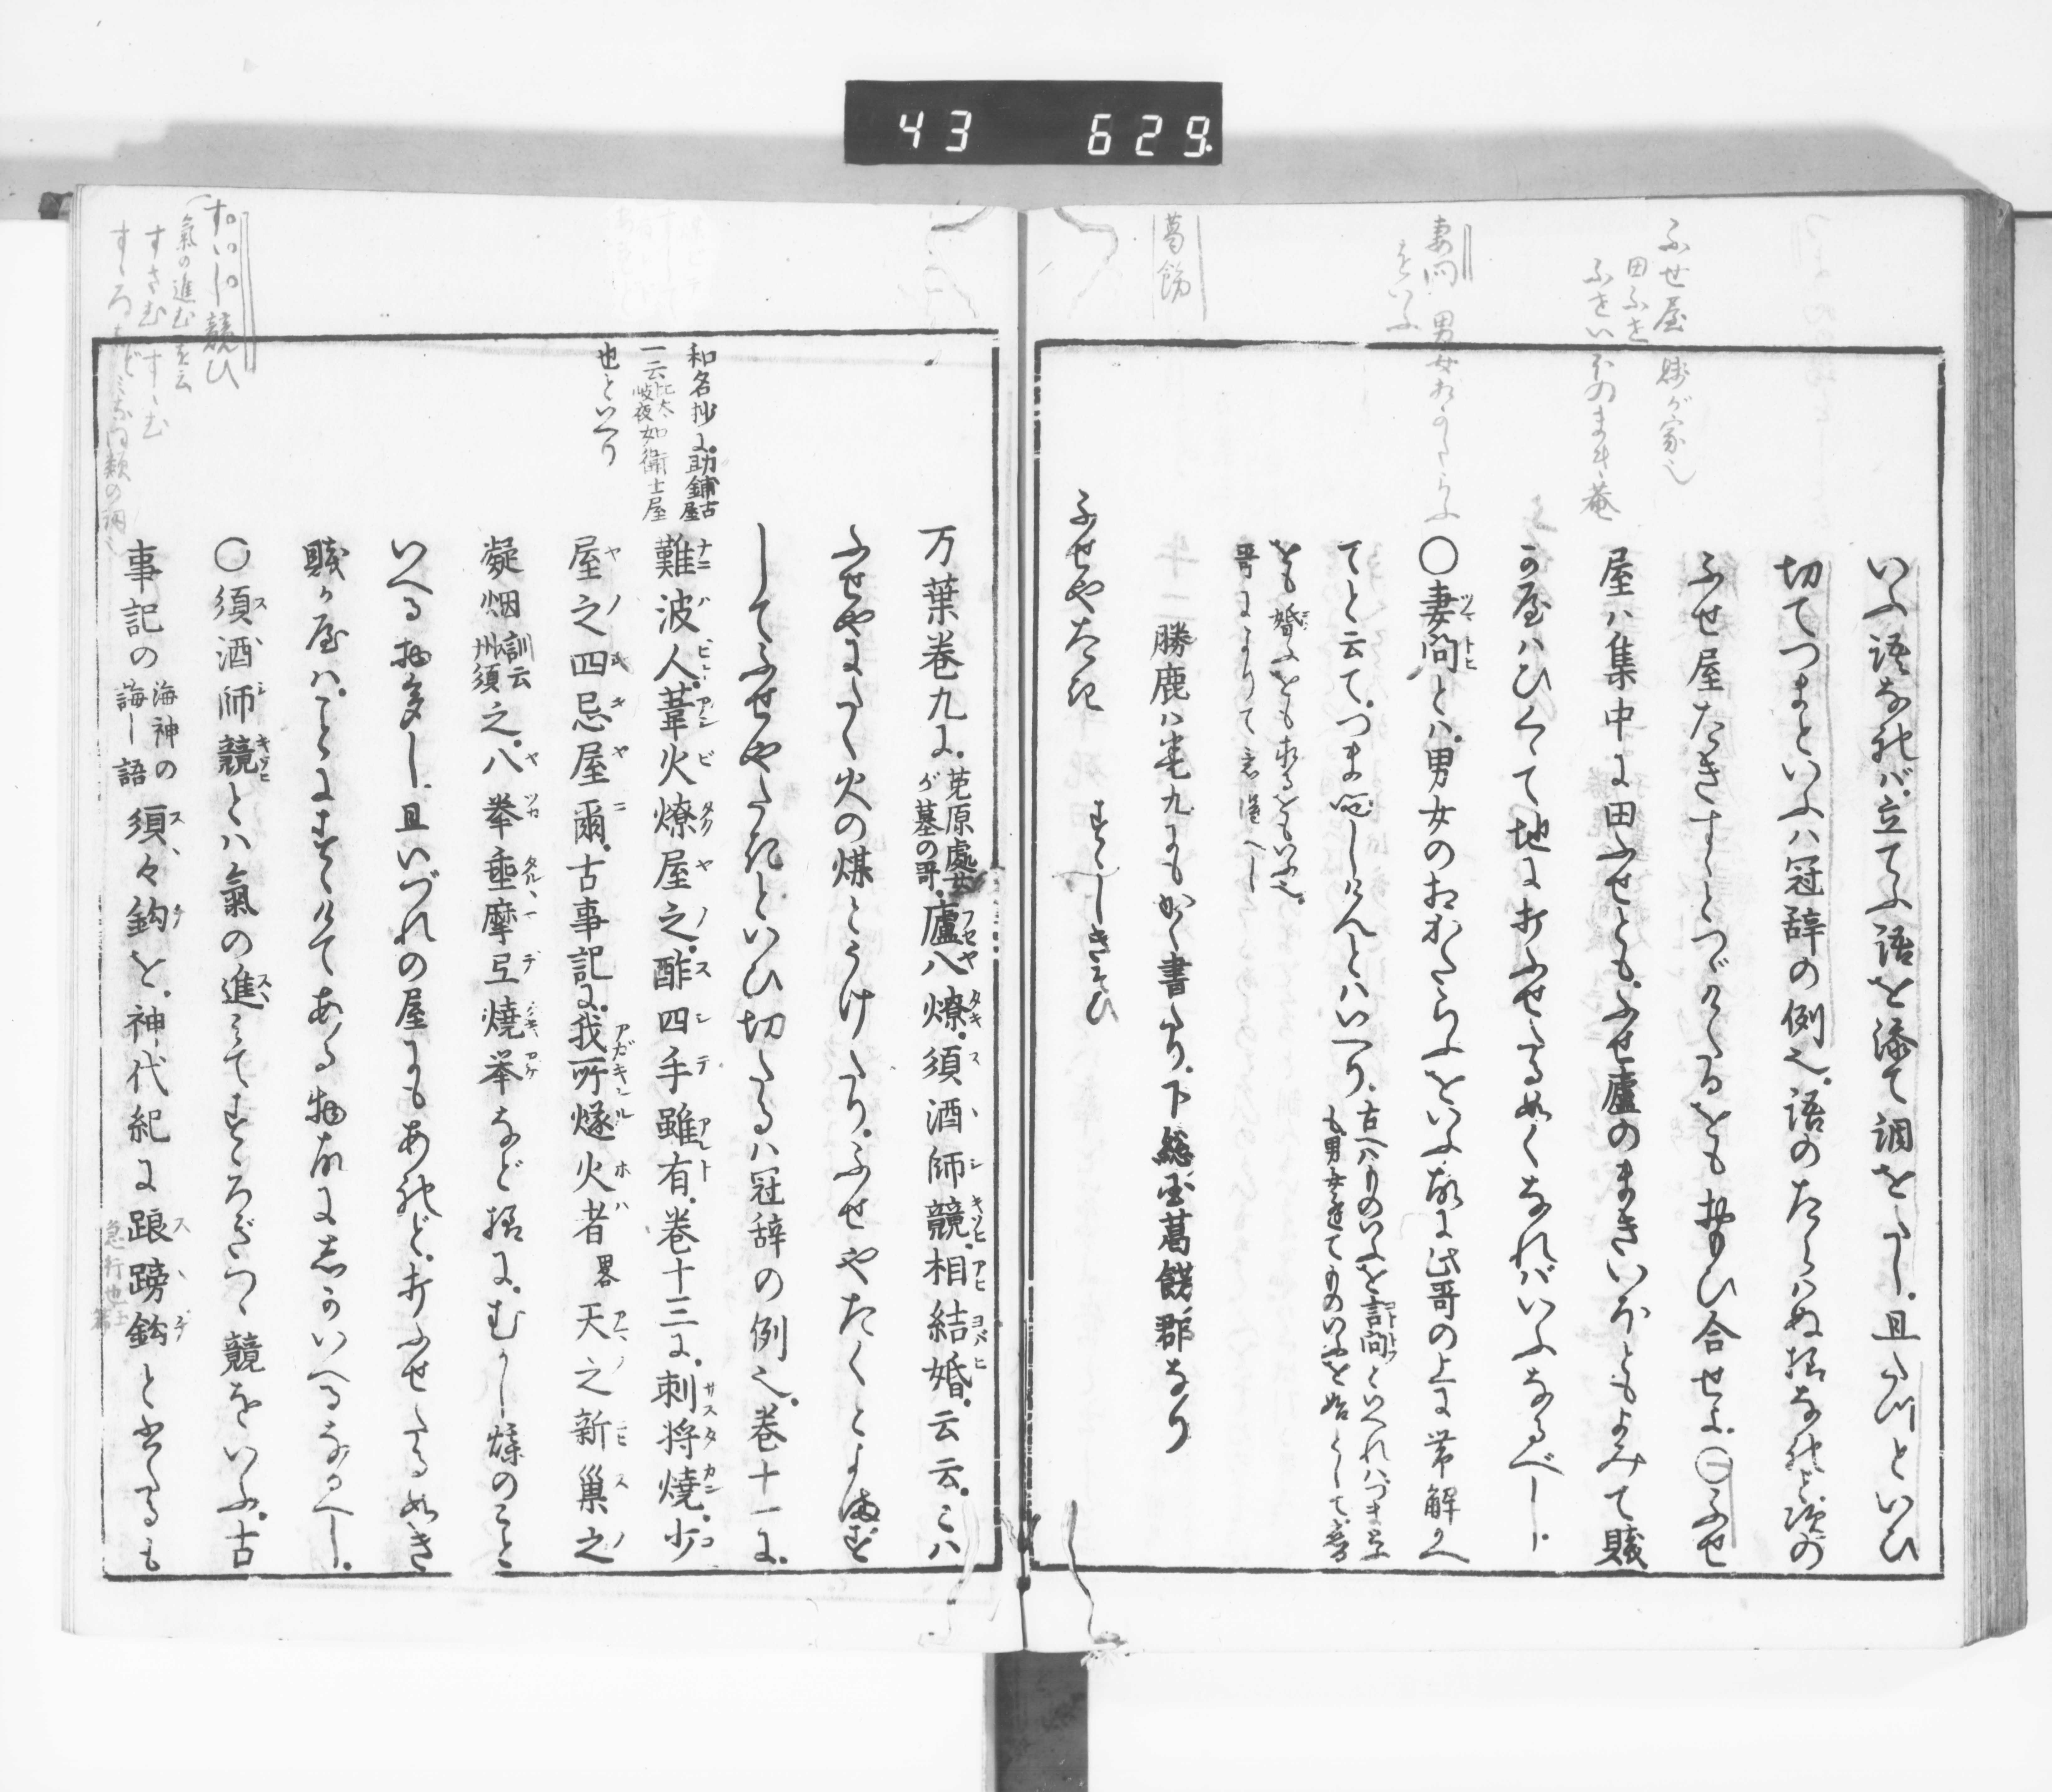 43 629
ふせ屋 賎が家也
田ふせ
ふせいほのまけ菴
妻問 男女かたらふ
をいふ
葛餝
いふ語なれバ立てふ語を添て調をし且川といひ
切てつまといふハ冠辞の例也語のたらハぬ様なれど次の
ふせ屋たきすゝとつゞけたるをも思ひ合せよ○ふせ
屋ハ集中に田ふせともふせ廬のまきいほともよみて賤
の屋ハひくて地に打ふせたる如くなれバいふなるべし
○妻問とハ男女のおかたらふをいふ故に此哥の上に帯解かへ
てと云てつま問しけんとハいへり
古へハものいふを言問といへれバつま
も男女逢てものいふを始として
をも婚ふをも求るをもいふ也
哥によりて意得べし
勝鹿ハ巻九にもかく書たり下総国葛餝郡なり
ふせやたき すゝしきそひ
万葉巻九に 菟原處女が墓の哥 廬八燎須酒師競相結婚云云こハ
ふせやにたく火の煤とうけたりふせやたくとよまず
してふせやたきといひ切たるハ冠辞の例也巻十一に
和名抄に助鋪古屋
一云比太岐夜如衛士屋
也といへり
難波人葦火燎屋之酢四手雖有巻十三に刺将焼少
屋之四忌屋爾古事記に我所燧火者畧天之新巣之
凝烟訓云州須之八挙垂摩弖焼挙など様にむかし煤のこと
いへる物多し且いづれの屋にもあれど打ふせたる如き
賤が屋ハことにすゝけてある物故に志かいへるなるべし
すゝし競ひ
氣の進むを云
すさむすゝむ
すゝろなどミな同類の詞也
○須酒師競とハ氣の進ミてすゝろだつゝ競をいふ古
事記の 海神の誨し語 須々鉤を神代紀に踉䠙鉤と書たるも
急行也玉篇